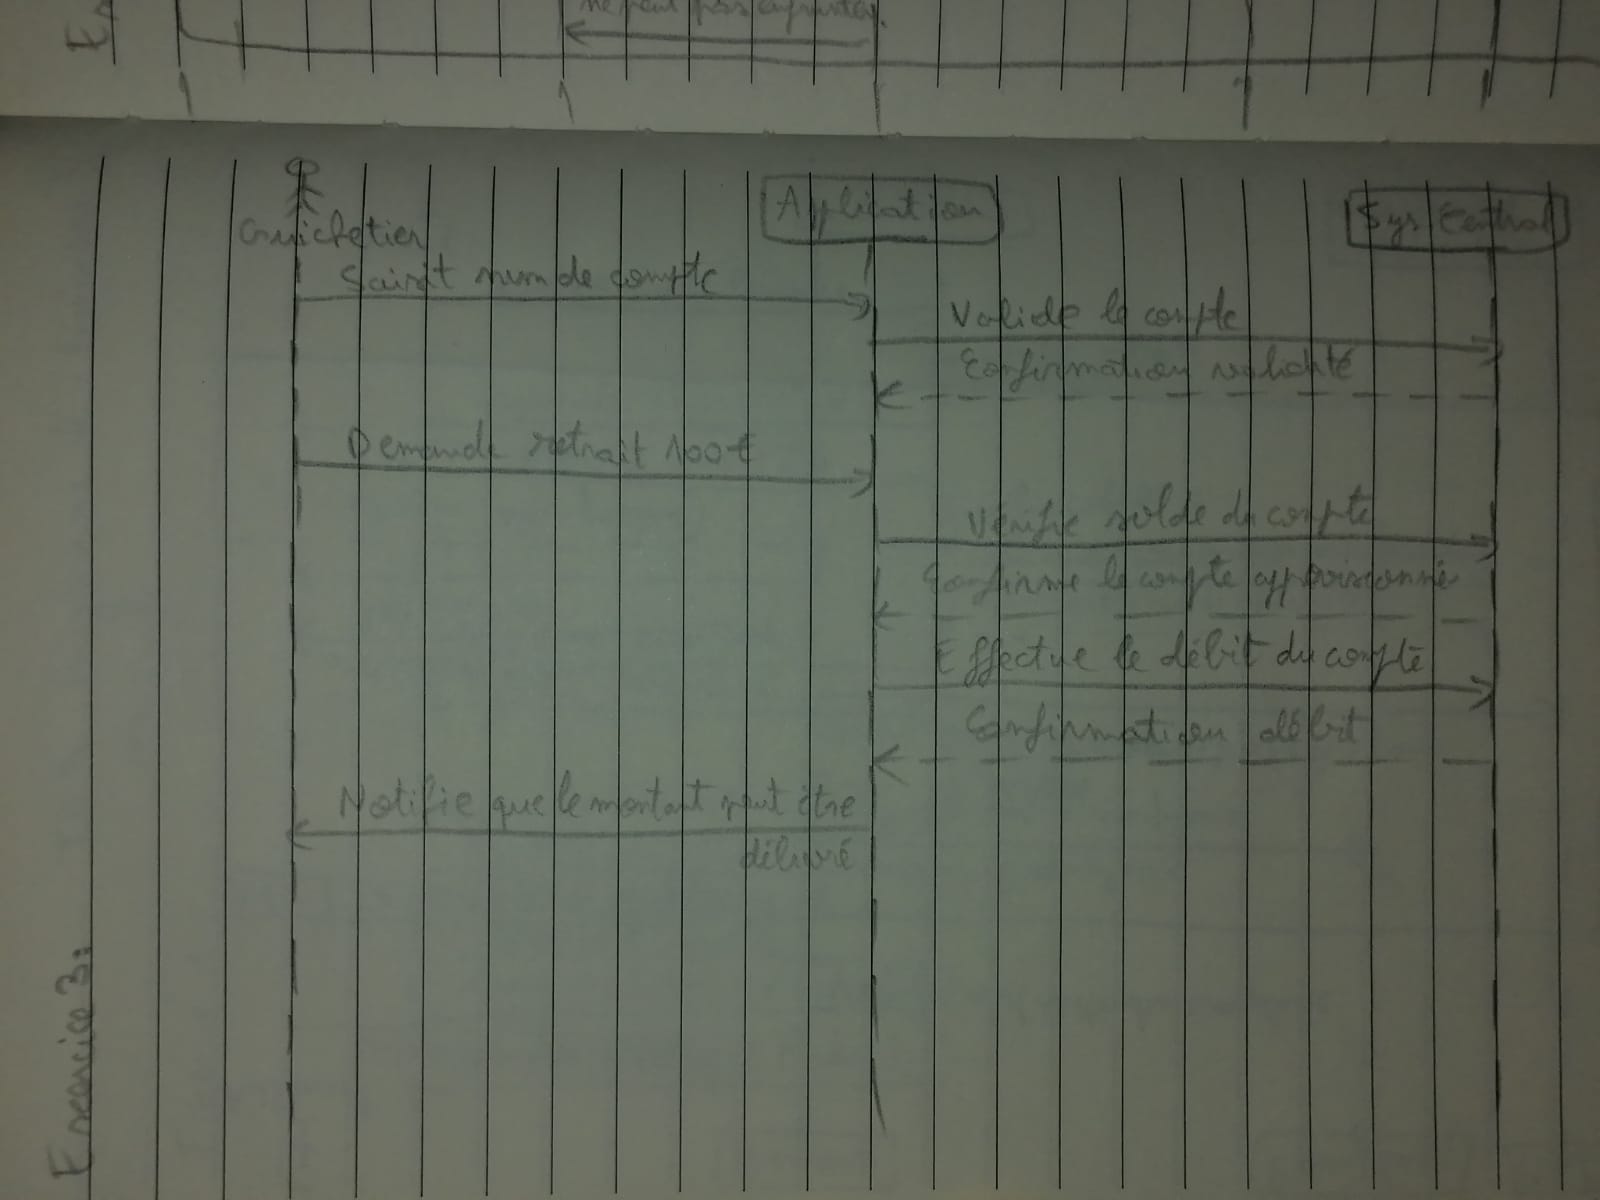 ne peut pas emprunter.
Guichetier
Application
Sys Central
Saisit num de compte
Valide le compte
Confirmation validité
Demande retrait 100€
Vérifie solde du compte
Confirme le compte approvisionné
Effectue le débit du compte
Confirmation débit
Notifie que le montant peut être
délivré
Exercice 3: